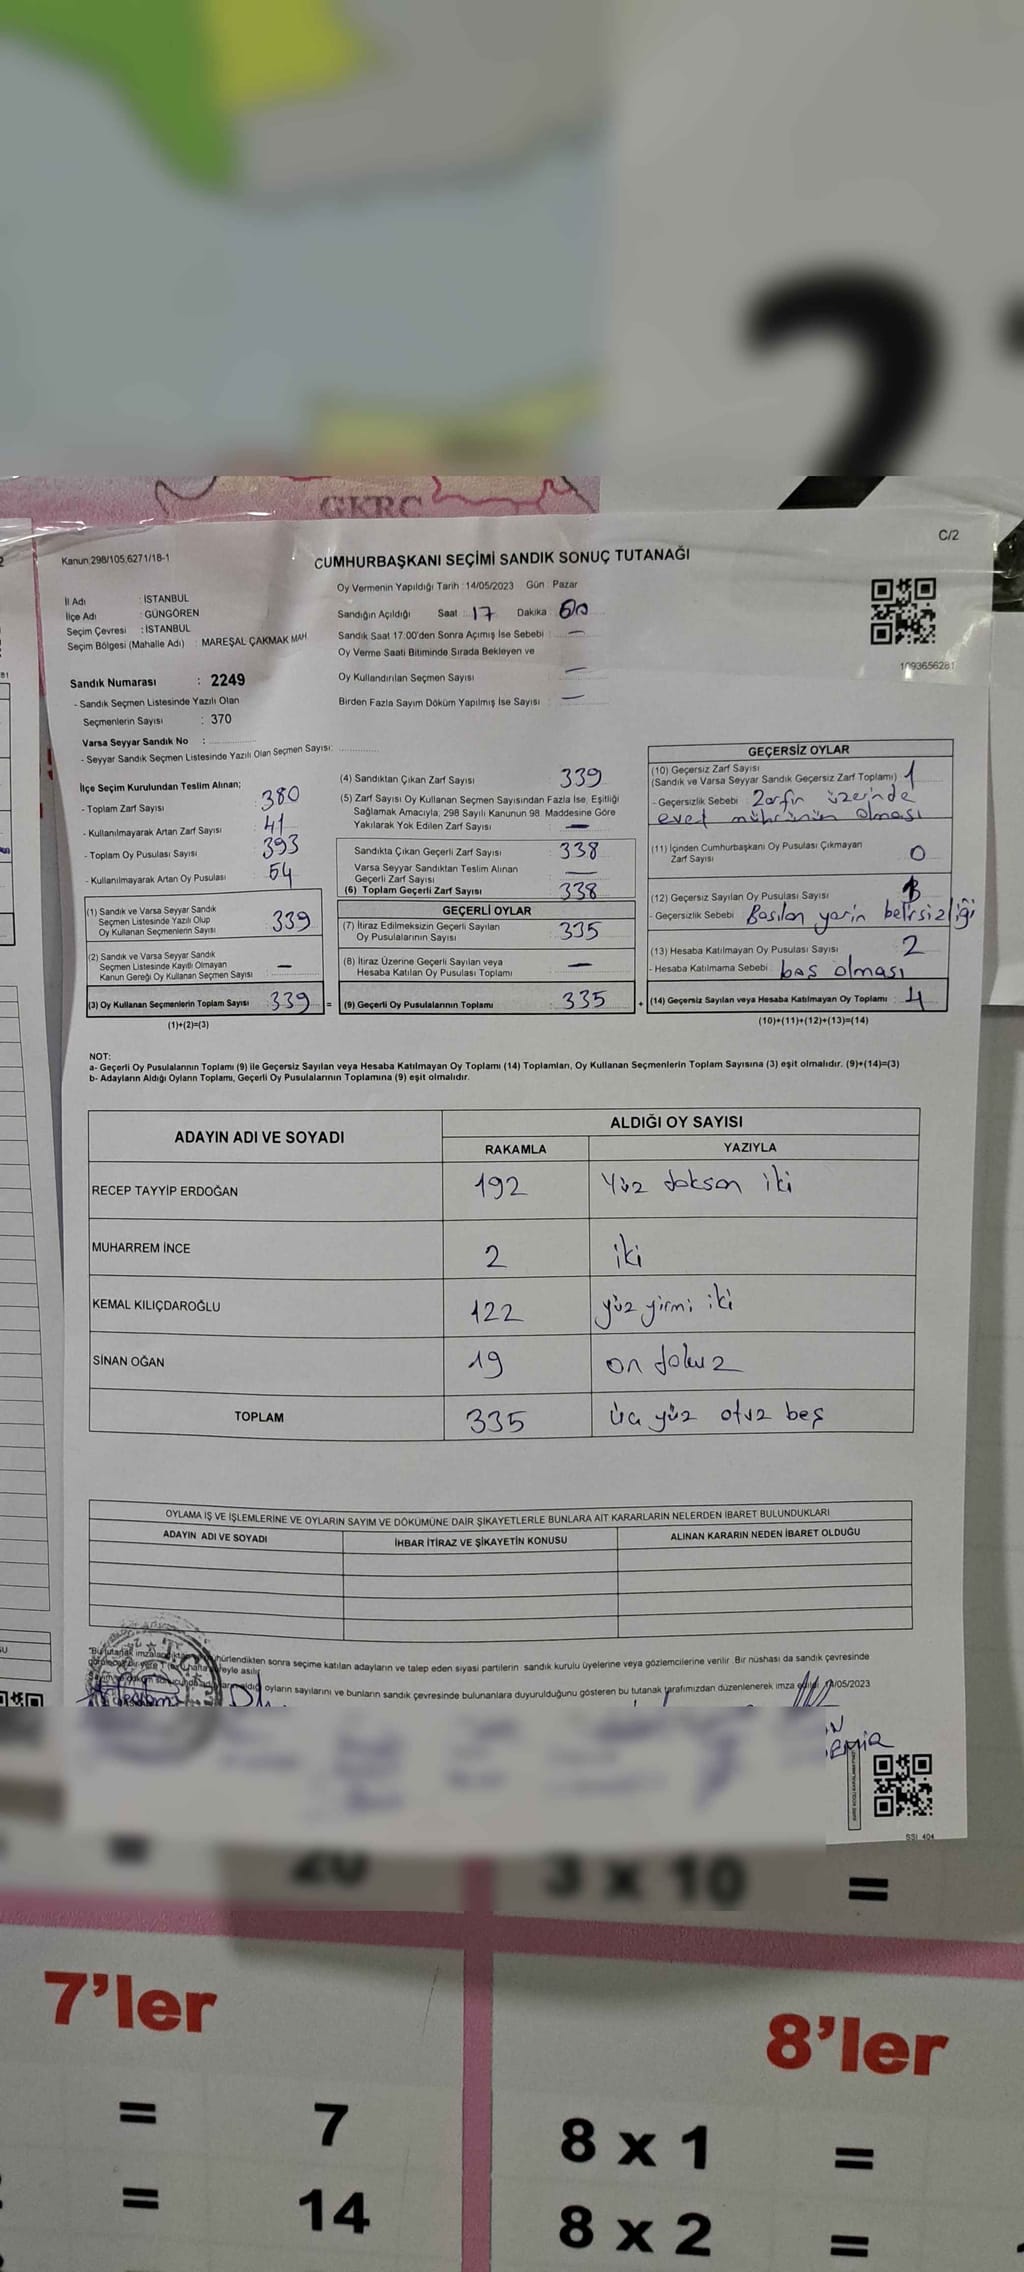 GKRC
C/2
Kanun.298/105,6271/18-1
CUMHURBAŞKANI SEÇİMİ SANDIK SONUÇ TUTANAĞI
Oy Vermenin Yapıldığı Tarih : 14/05/2023 Gün Pazar
İl Adı : İSTANBUL
İlçe Adı : GÜNGÖREN
Seçim Çevresi : İSTANBUL
Seçim Bölgesi (Mahalle Adı) : MAREŞAL ÇAKMAK MAH.
Sandığın Açıldığı Saat : 17 Dakika :
Sandık Saat 17.00'den Sonra Açımış İse Sebebi : —
Oy Verme Saati Bitiminde Sırada Bekleyen ve
Oy Kullandırılan Seçmen Sayısı : —
Birden Fazla Sayım Döküm Yapılmış İse Sayısı : —
1093656281
Sandık Numarası : 2249
- Sandık Seçmen Listesinde Yazılı Olan
Seçmenlerin Sayısı : 370
Varsa Seyyar Sandık No :
- Seyyar Sandık Seçmen Listesinde Yazılı Olan Seçmen Sayısı:
İlçe Seçim Kurulundan Teslim Alınan;
- Toplam Zarf Sayısı : 380
- Kullanılmayarak Artan Zarf Sayısı : 41
- Toplam Oy Pusulası Sayısı : 393
- Kullanılmayarak Artan Oy Pusulası : 54
(1) Sandık ve Varsa Seyyar Sandık
Seçmen Listesinde Yazılı Olup
Oy Kullanan Seçmenlerin Sayısı : 339
(2) Sandık ve Varsa Seyyar Sandık
Seçmen Listesinde Kayıtlı Olmayan
Kanun Gereği Oy Kullanan Seçmen Sayısı : —
(3) Oy Kullanan Seçmenlerin Toplam Sayısı : 339 =
(1)+(2)=(3)
(4) Sandıktan Çıkan Zarf Sayısı : 339
(5) Zarf Sayısı Oy Kullanan Seçmen Sayısından Fazla İse, Eşitliği
Sağlamak Amacıyla, 298 Sayılı Kanunun 98. Maddesine Göre
Yakılarak Yok Edilen Zarf Sayısı : —
Sandıkta Çıkan Geçerli Zarf Sayısı : 338
Varsa Seyyar Sandıktan Teslim Alınan
Geçerli Zarf Sayısı : —
(6) Toplam Geçerli Zarf Sayısı : 338
GEÇERLİ OYLAR
(7) İtiraz Edilmeksizin Geçerli Sayılan
Oy Pusulalarının Sayısı : 335
(8) İtiraz Üzerine Geçerli Sayılan veya
Hesaba Katılan Oy Pusulası Toplamı : —
(9) Geçerli Oy Pusulalarının Toplamı : 335 +
GEÇERSİZ OYLAR
(10) Geçersiz Zarf Sayısı
(Sandık ve Varsa Seyyar Sandık Geçersiz Zarf Toplamı) : 1
- Geçersizlik Sebebi : Zarfın üzerinde
evet mührünün olması
(11) İçinden Cumhurbaşkanı Oy Pusulası Çıkmayan
Zarf Sayısı : 0
(12) Geçersiz Sayılan Oy Pusulası Sayısı :
- Geçersizlik Sebebi : Basılan yerin belirsizliği
(13) Hesaba Katılmayan Oy Pusulası Sayısı : 2
- Hesaba Katılmama Sebebi : boş olması
(14) Geçersiz Sayılan veya Hesaba Katılmayan Oy Toplamı : 4
(10)+(11)+(12)+(13)=(14)
NOT:
a- Geçerli Oy Pusulalarının Toplamı (9) ile Geçersiz Sayılan veya Hesaba Katılmayan Oy Toplamı (14) Toplamları, Oy Kullanan Seçmenlerin Toplam Sayısına (3) eşit olmalıdır. (9)+(14)=(3)
b- Adayların Aldığı Oyların Toplamı, Geçerli Oy Pusulalarının Toplamına (9) eşit olmalıdır.
ADAYIN ADI VE SOYADI ALDIĞI OY SAYISI
RAKAMLA YAZIYLA
RECEP TAYYİP ERDOĞAN 192 Yüz doksan iki
MUHARREM İNCE 2 iki
KEMAL KILIÇDAROĞLU 122 yüz yirmi iki
SİNAN OĞAN 19 on dokuz
TOPLAM 335 üç yüz otuz beş
OYLAMA İŞ VE İŞLEMLERİNE VE OYLARIN SAYIM VE DÖKÜMÜNE DAİR ŞİKAYETLERLE BUNLARA AİT KARARLARIN NELERDEN İBARET BULUNDUKLARI
ADAYIN ADI VE SOYADI İHBAR İTİRAZ VE ŞİKAYETİN KONUSU ALINAN KARARIN NEDEN İBARET OLDUĞU
sonra seçime katılan adayların ve talep eden siyasi partilerin sandık kurulu üyelerine veya gözlemcilerine verilir. Bir nüshası da sandık çevresinde
oyların sayılarını ve bunların sandık çevresinde bulunanlara duyurulduğunu gösteren bu tutanak tarafımızdan düzenlenerek imza
SSI 404
20 3 x 10 =
7'ler 8'ler
= 7 8 x 1 =
= 14 8 x 2 =